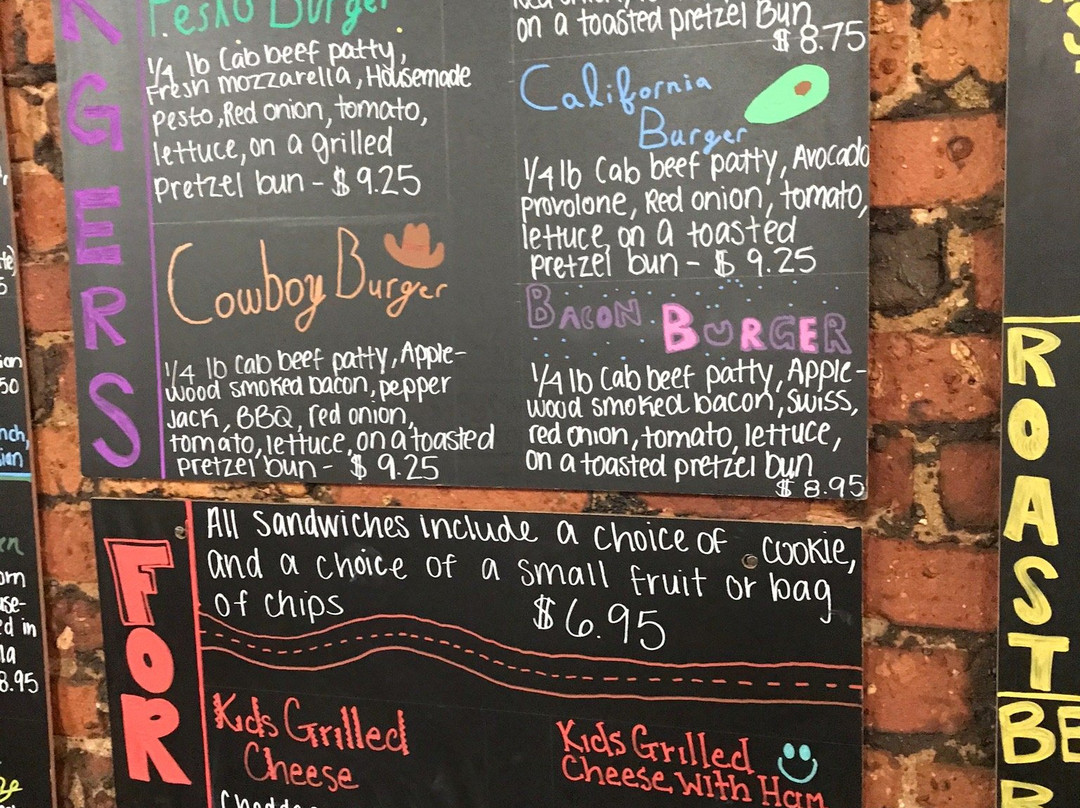 RGERS
Pesto Burger
1/4 lb Cab beef patty,
Fresh mozzarella, Housemade
Pesto, Red onion, tomato,
lettuce, on a grilled
Pretzel bun - $ 9.25
Cowboy Burger
1/4 lb Cab beef patty, Apple-
wood smoked bacon, pepper
Jack, BBQ, red onion,
tomato, lettuce, on a toasted
Pretzel bun - $ 9.25
on a toasted pretzel Bun
$ 8.75
California
Burger
1/4 lb Cab beef patty, Avocado
Provolone, Red onion, tomato,
lettuce, on a toasted
pretzel bun - $ 9.25
BACON BURGER
1/4 lb Cab beef patty, Apple-
wood smoked bacon, Swiss,
red onion, tomato, lettuce,
on a toasted pretzel bun
$ 8.95
FOR
All Sandwiches include a choice of cookie,
and a choice of a small fruit or bag
of chips $6.95
Kids Grilled
Cheese
Kids Grilled
Cheese with Ham
ed in
8.95
ROAST
BE